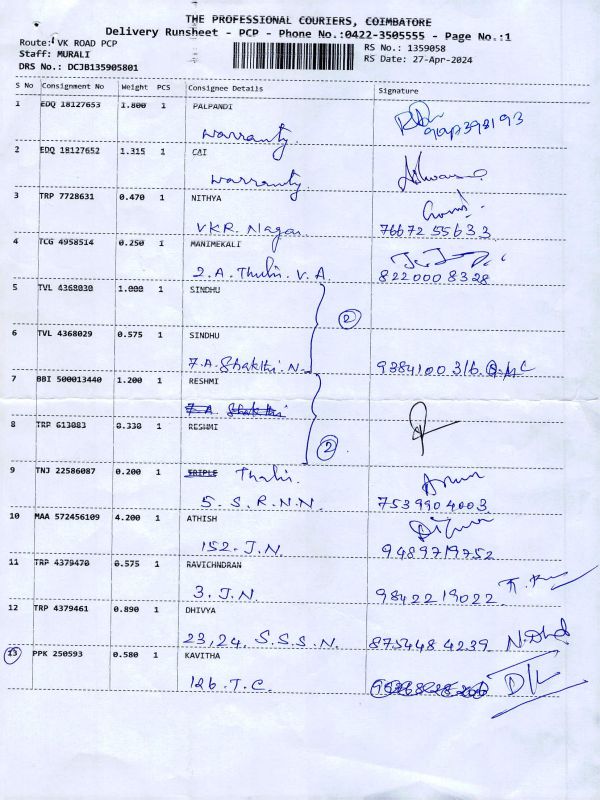 THE PROFESSIONAL COURIERS, COIMBATORE
Delivery Runsheet - PCP - Phone No.:0422-3505555 - Page No.:1
Route: VK ROAD PCP
RS No.: 1359058
Staff: MURALI
RS Date: 27-Apr-2024
DRS No.: DCJB135905801
S No Consignment No Weight PCS Consignee Details Signature
1 EDQ 18127653 1.800 1 PALPANDI
warranty
2 EDQ 18127652 1.315 1 CAI
warranty
3 TRP 7728631 0.470 1 NITHYA
VKR. Nagar 76672 55633
4 TCG 4958514 0.250 1 MANIMEKALI
2.A. Thulsi. V.A. 822000 8328
5 TVL 4368030 1.000 1 SINDHU
2
6 TVL 4368029 0.575 1 SINDHU
7.A. Shakthi.N. 9384100316.
7 BBI 500013440 1.200 1 RESHMI
7.A. Shakthi
8 TRP 613083 0.330 1 RESHMI
2
9 TNJ 22586087 0.200 1 TRIPLE
5. S.R.N.N. 7539904003
10 MAA 572456109 4.200 1 ATHISH
152. J.N. 9489719752
11 TRP 4379470 0.575 1 RAVICHNDRAN
3. J.N. 98422 19022
12 TRP 4379461 0.890 1 DHIVYA
23,24. S.S.S.N. 875448 4239
13 PPK 250593 0.580 1 KAVITHA
126. T.C.